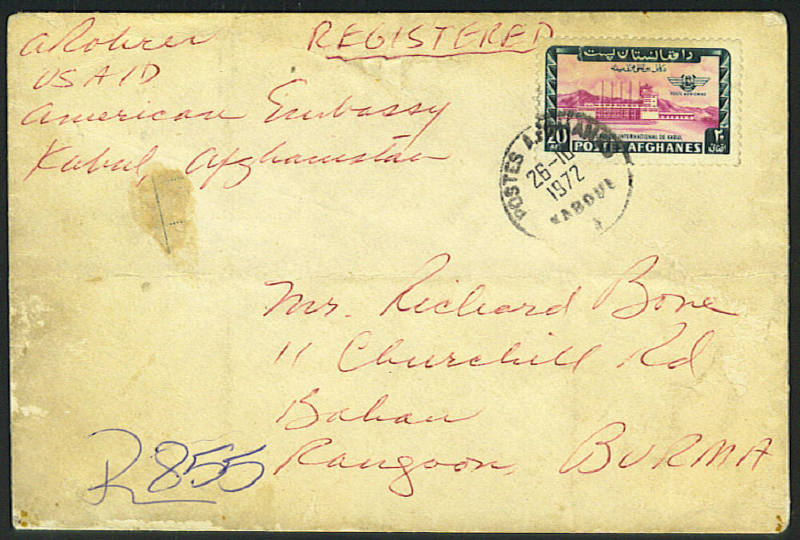 A Rohrer
USAID
American Embassy
Kabul, Afghanistan
REGISTERED
د افغانستان پست
POSTE AERIENNE
INTERNATIONAL DE KABUL
20
AF
POSTES AFGHANES
٢٠
POSTES AFGHANES
26-10
1972
KABOUL
Mr. Richard Bone
11 Churchill Rd
Bahan
Rangoon, BURMA
R 855